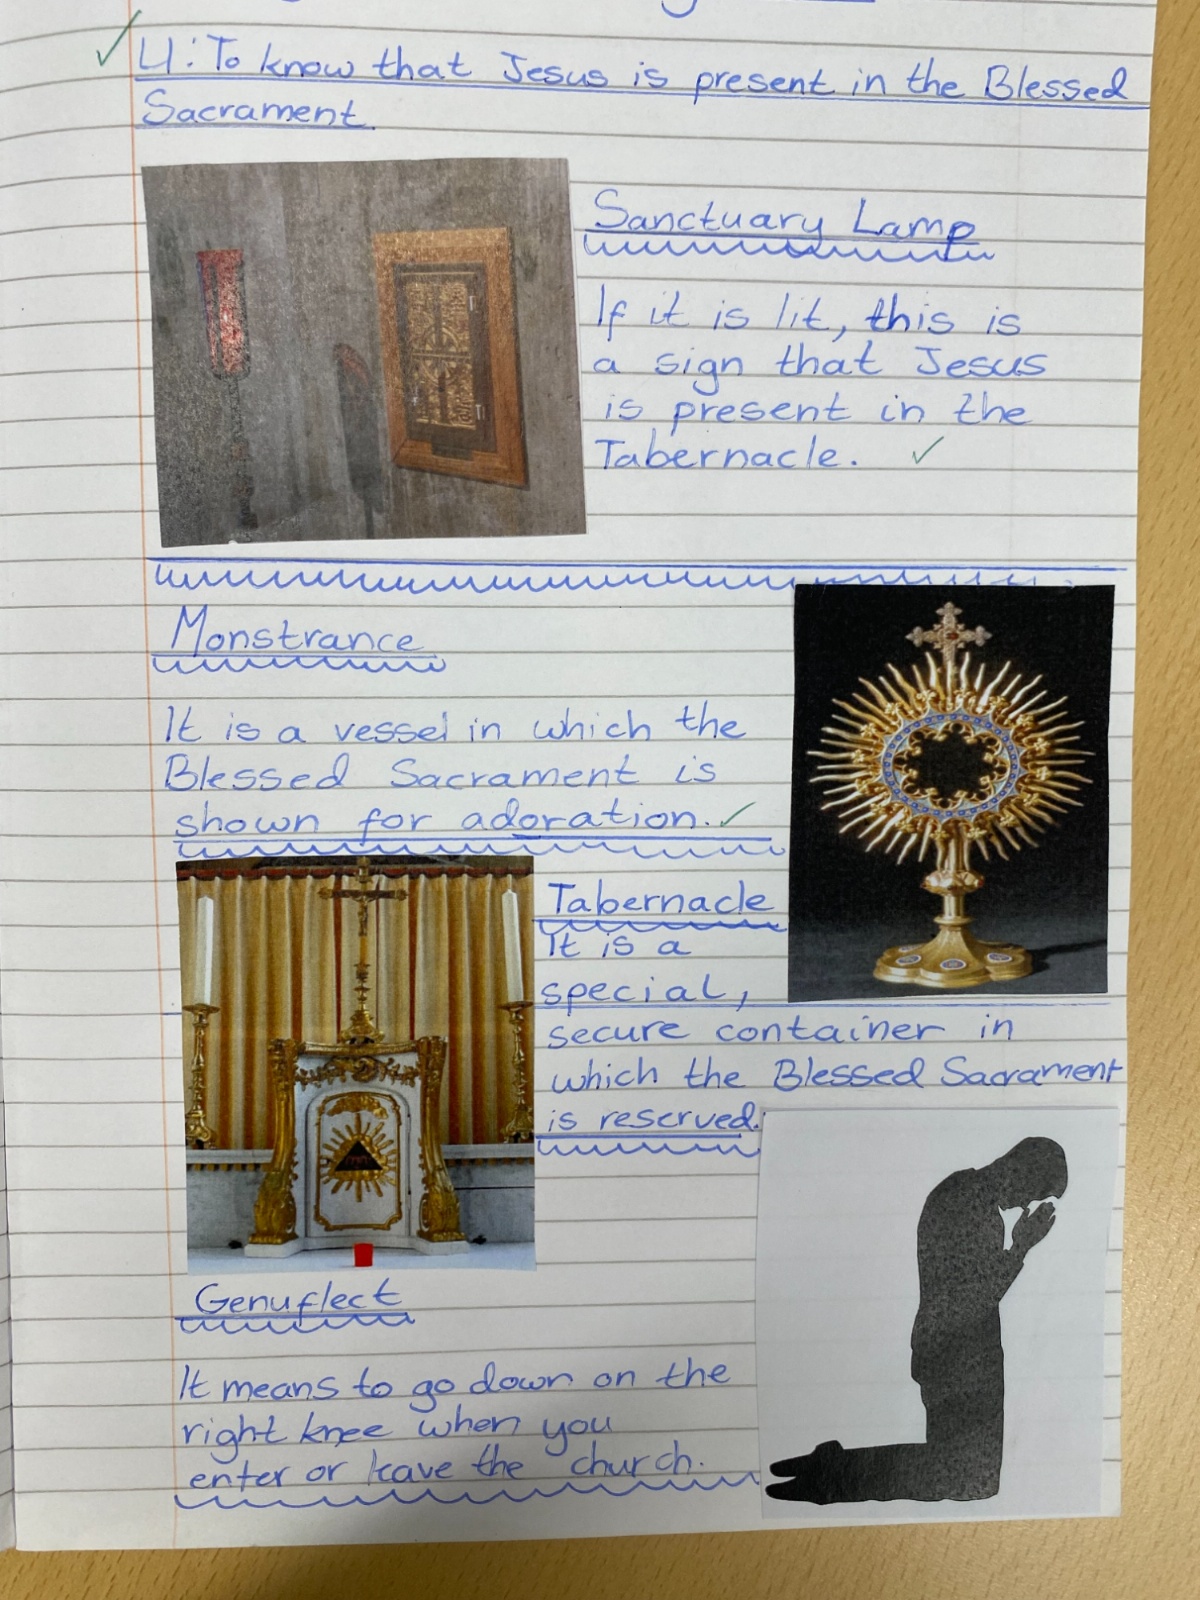 LI: To know that Jesus is present in the Blessed
Sacrament
Sanctuary Lamp
If it is lit, this is
a sign that Jesus
is present in the
Tabernacle.
Monstrance
It is a vessel in which the
Blessed Sacrament is
shown for adoration.
Tabernacle
It is a
special,
secure container in
which the Blessed Sacrament
is reserved.
Genuflect
It means to go down on the
right knee when you
enter or leave the church.